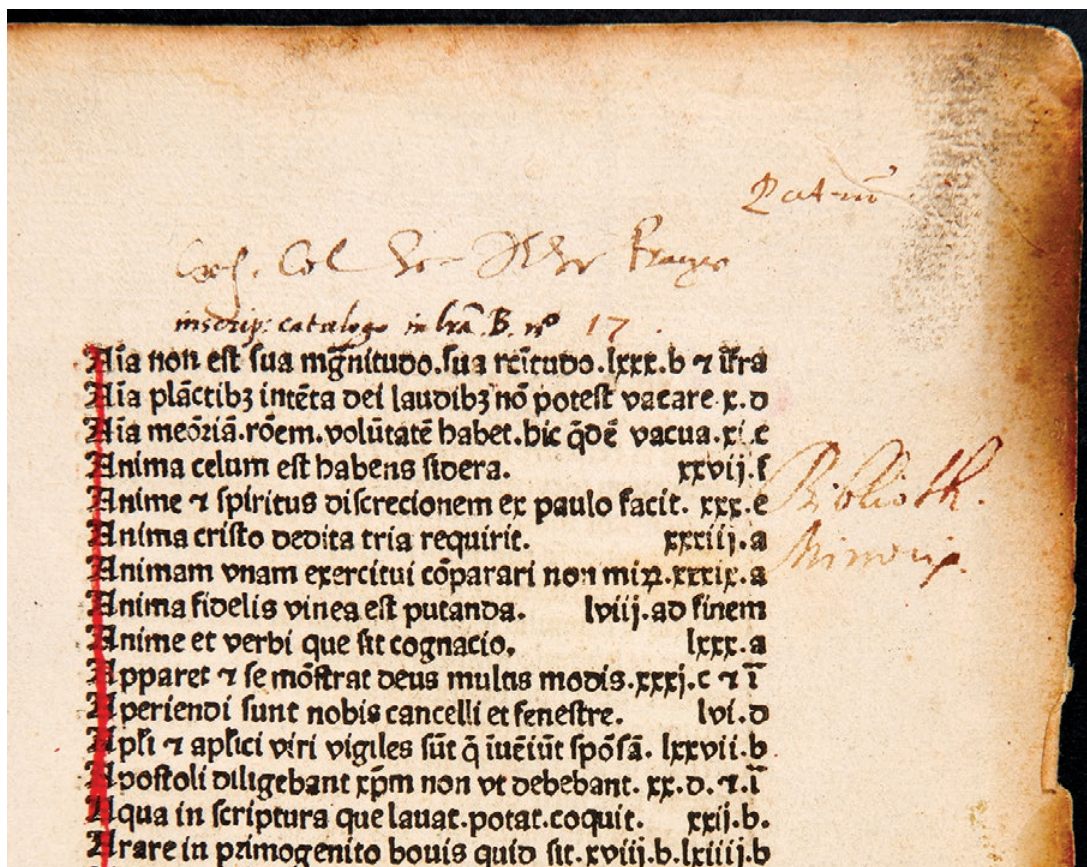 Patrũ
Col
inscrip: catalogo in lrã. B. nº 17.
Aĩa non est sua mg̃nitudo.sua rcĩtudo.lxxx.b ⁊ ĩfra
Aĩa plãctibꝫ intẽta dei laudibꝫ nõ potest vacare.x.d
Aĩa meõriã.rõem.volũtatẽ habet.hic q̃dẽ vacua.xi.e
Anima celum est habens sidera. xxvij.f
Anime ⁊ spiritus discrecionem ex paulo facit. xxx.e
Anima cristo dedita tria requirit. xxxiij.a
Animam vnam exercitui cõparari non miꝝ.xxxix.a
Anima fidelis vinea est putanda. lviij.ad finem
Anime et verbi que sit cognacio. lxxx.a
Apparet ⁊ se mõstrat deus multis modis.xxxj.c ⁊ ĩ
Aperiendi sunt nobis cancelli et fenestre. lvi.d
Apłi ⁊ apłici viri vigiles sũt q̃ ĩuẽiũt spõsã. lxxvii.b
Apostoli diligebant xp̃m non vt debebant. xx.d.⁊.ĩ
Aqua in scriptura que lauat.potat.coquit. xxij.b.
Arare in primogenito bouis quid sit.xviij.b.lxiiij.b
Biblioth.